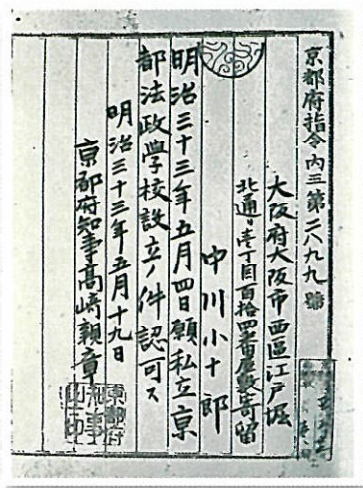 京都府指令内三第二八九九號
大阪府大阪市西區江戸堀
北通リ壱丁目百拾四番屋敷寄留
中川小十郎
明治三十三年五月四日願私立京
都法政學校設立ノ件認可ス
明治三十三年五月十九日
京都府知事高崎親章
京都府
知事
之印